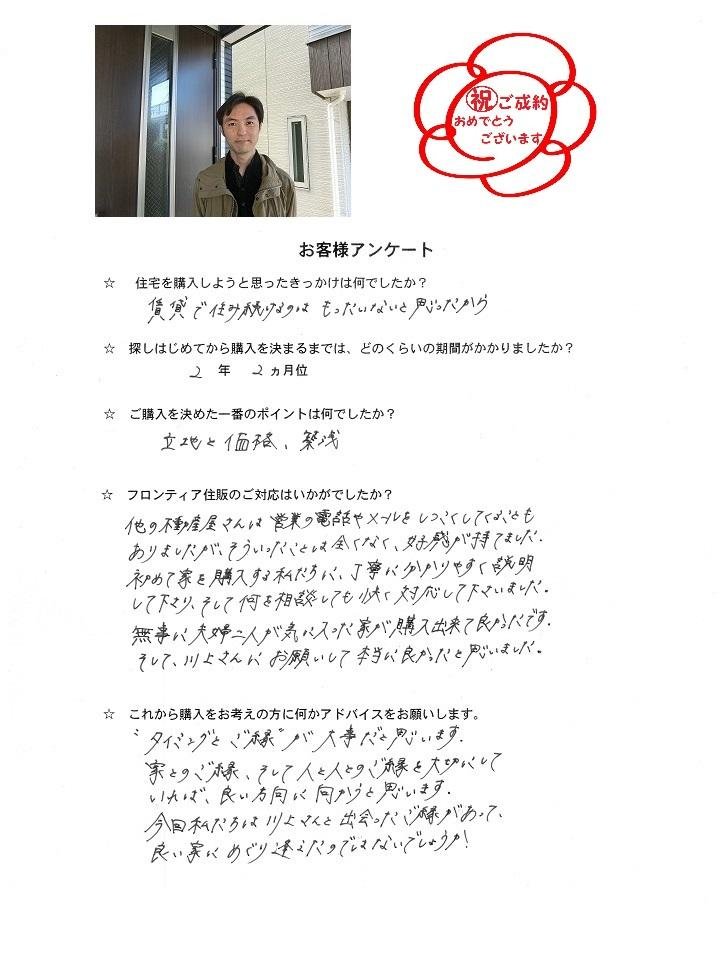 ㊗ご成約
おめでとう
ございます
お客様アンケート
☆ 住宅を購入しようと思ったきっかけは何でしたか？
賃貸で住み続けるのは もったいないと思ったから
☆ 探しはじめてから購入を決まるまでは、どのくらいの期間がかかりましたか？
2 年 2 ヵ月位
☆ ご購入を決めた一番のポイントは何でしたか？
立地と価格、築浅
☆ フロンティア住販のご対応はいかがでしたか？
他の不動産屋さんは営業の電話やメールをしつこくしてくることも
ありましたが、そういったことは全くなく、好感が持てました.
初めて家を購入する私たちに、丁寧に分かりやすく説明
して下さり、そして何を相談しても快く対応して下さいました。
無事に夫婦二人が気に入った家が購入出来て良かったです.
そして、川上さんにお願いして本当に良かったと思いました。
☆ これから購入をお考えの方に何かアドバイスをお願いします。
“タイミングとご縁”が大事だと思います.
家とのご縁、そして人と人とのご縁を大切にして
いれば、良い方向に向かうと思います.
今回私たちは川上さんと出会ったご縁があって、
良い家にめぐり逢えたのではないでしょうか!